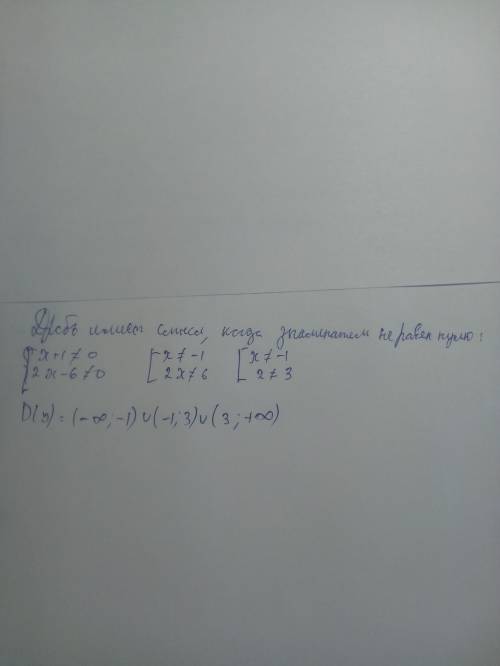 Дробь имеет смысл, когда знаменатель не равен нулю:
[x+1≠0 [x≠-1 [x≠-1
2x-6≠0 2x≠6 2≠3
D(y)=(-∞;-1)∪(-1;3)∪(3;+∞)